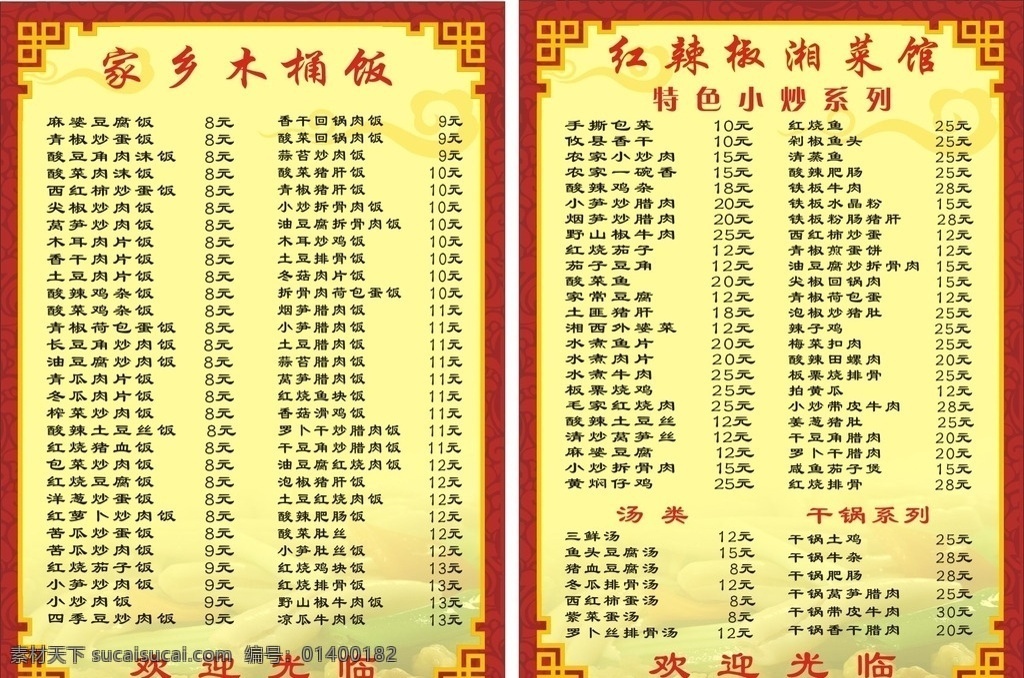 家乡木桶饭
麻婆豆腐饭 8元
青椒炒蛋饭 8元
酸豆角肉沫饭 8元
酸菜肉沫饭 8元
西红柿炒蛋饭 8元
尖椒炒肉饭 8元
莴笋炒肉饭 8元
木耳肉片饭 8元
香干肉片饭 8元
土豆肉片饭 8元
酸辣鸡杂饭 8元
酸菜鸡杂饭 8元
青椒荷包蛋饭 8元
长豆角炒肉饭 8元
油豆腐炒肉饭 8元
青瓜肉片饭 8元
冬瓜肉片饭 8元
榨菜炒肉饭 8元
酸辣土豆丝饭 8元
红烧猪血饭 8元
包菜炒肉饭 8元
红烧豆腐饭 8元
洋葱炒蛋饭 8元
红萝卜炒肉饭 8元
苦瓜炒蛋饭 8元
苦瓜炒肉饭 9元
红烧茄子饭 9元
小笋炒肉饭 9元
小炒肉饭 9元
四季豆炒肉饭 9元
香干回锅肉饭 9元
酸菜回锅肉饭 9元
蒜苔炒肉饭 9元
酸菜猪肝饭 10元
青椒猪肝饭 10元
小炒拆骨肉饭 10元
油豆腐拆骨肉饭 10元
木耳炒鸡饭 10元
土豆排骨饭 10元
冬菇肉片饭 10元
拆骨肉荷包蛋饭 10元
烟笋腊肉饭 11元
小笋腊肉饭 11元
土豆腊肉饭 11元
蒜苔腊肉饭 11元
莴笋腊肉饭 11元
红烧鱼块饭 11元
香菇滑鸡饭 11元
罗卜干炒腊肉饭 11元
干豆角炒腊肉饭 11元
油豆腐红烧肉饭 12元
泡椒猪肚饭 12元
土豆红烧肉饭 12元
酸辣肥肠饭 12元
酸菜肚丝 12元
小笋肚丝饭 12元
红烧鸡块饭 13元
红烧排骨饭 13元
野山椒牛肉饭 13元
凉瓜牛肉饭 13元
欢迎光临
红辣椒湘菜馆
特色小炒系列
手撕包菜 10元
攸县香干 10元
农家小炒肉 15元
农家一碗香 15元
酸辣鸡杂 18元
小笋炒腊肉 20元
烟笋炒腊肉 20元
野山椒牛肉 25元
红烧茄子 12元
茄子豆角 12元
酸菜鱼 20元
家常豆腐 12元
土匪猪肝 18元
湘西外婆菜 12元
水煮鱼片 20元
水煮肉片 20元
水煮牛肉 25元
板栗烧鸡 25元
毛家红烧肉 25元
酸辣土豆丝 12元
清炒莴笋丝 12元
麻婆豆腐 12元
小炒拆骨肉 15元
黄焖仔鸡 25元
红烧鱼 25元
剁椒鱼头 25元
清蒸鱼 25元
酸辣肥肠 25元
铁板牛肉 28元
铁板水晶粉 15元
铁板粉肠猪肝 28元
西红柿炒蛋 12元
青椒煎蛋饼 12元
油豆腐炒拆骨肉 15元
尖椒回锅肉 15元
青椒荷包蛋 12元
泡椒炒猪肚 25元
辣子鸡 25元
梅菜扣肉 25元
酸辣田螺肉 20元
板栗烧排骨 25元
拍黄瓜 12元
小炒带皮牛肉 28元
姜葱猪肚 25元
干豆角腊肉 20元
罗卜干腊肉 20元
咸鱼茄子煲 15元
红烧排骨 28元
汤类
三鲜汤 12元
鱼头豆腐汤 15元
猪血豆腐汤 8元
冬瓜排骨汤 12元
西红柿蛋汤 8元
紫菜蛋汤 8元
罗卜丝排骨汤 12元
干锅系列
干锅土鸡 25元
干锅牛杂 28元
干锅肥肠 28元
干锅莴笋腊肉 25元
干锅带皮牛肉 30元
干锅香干腊肉 20元
欢迎光临
素材天下 sucaisucai.com 编号：01400182